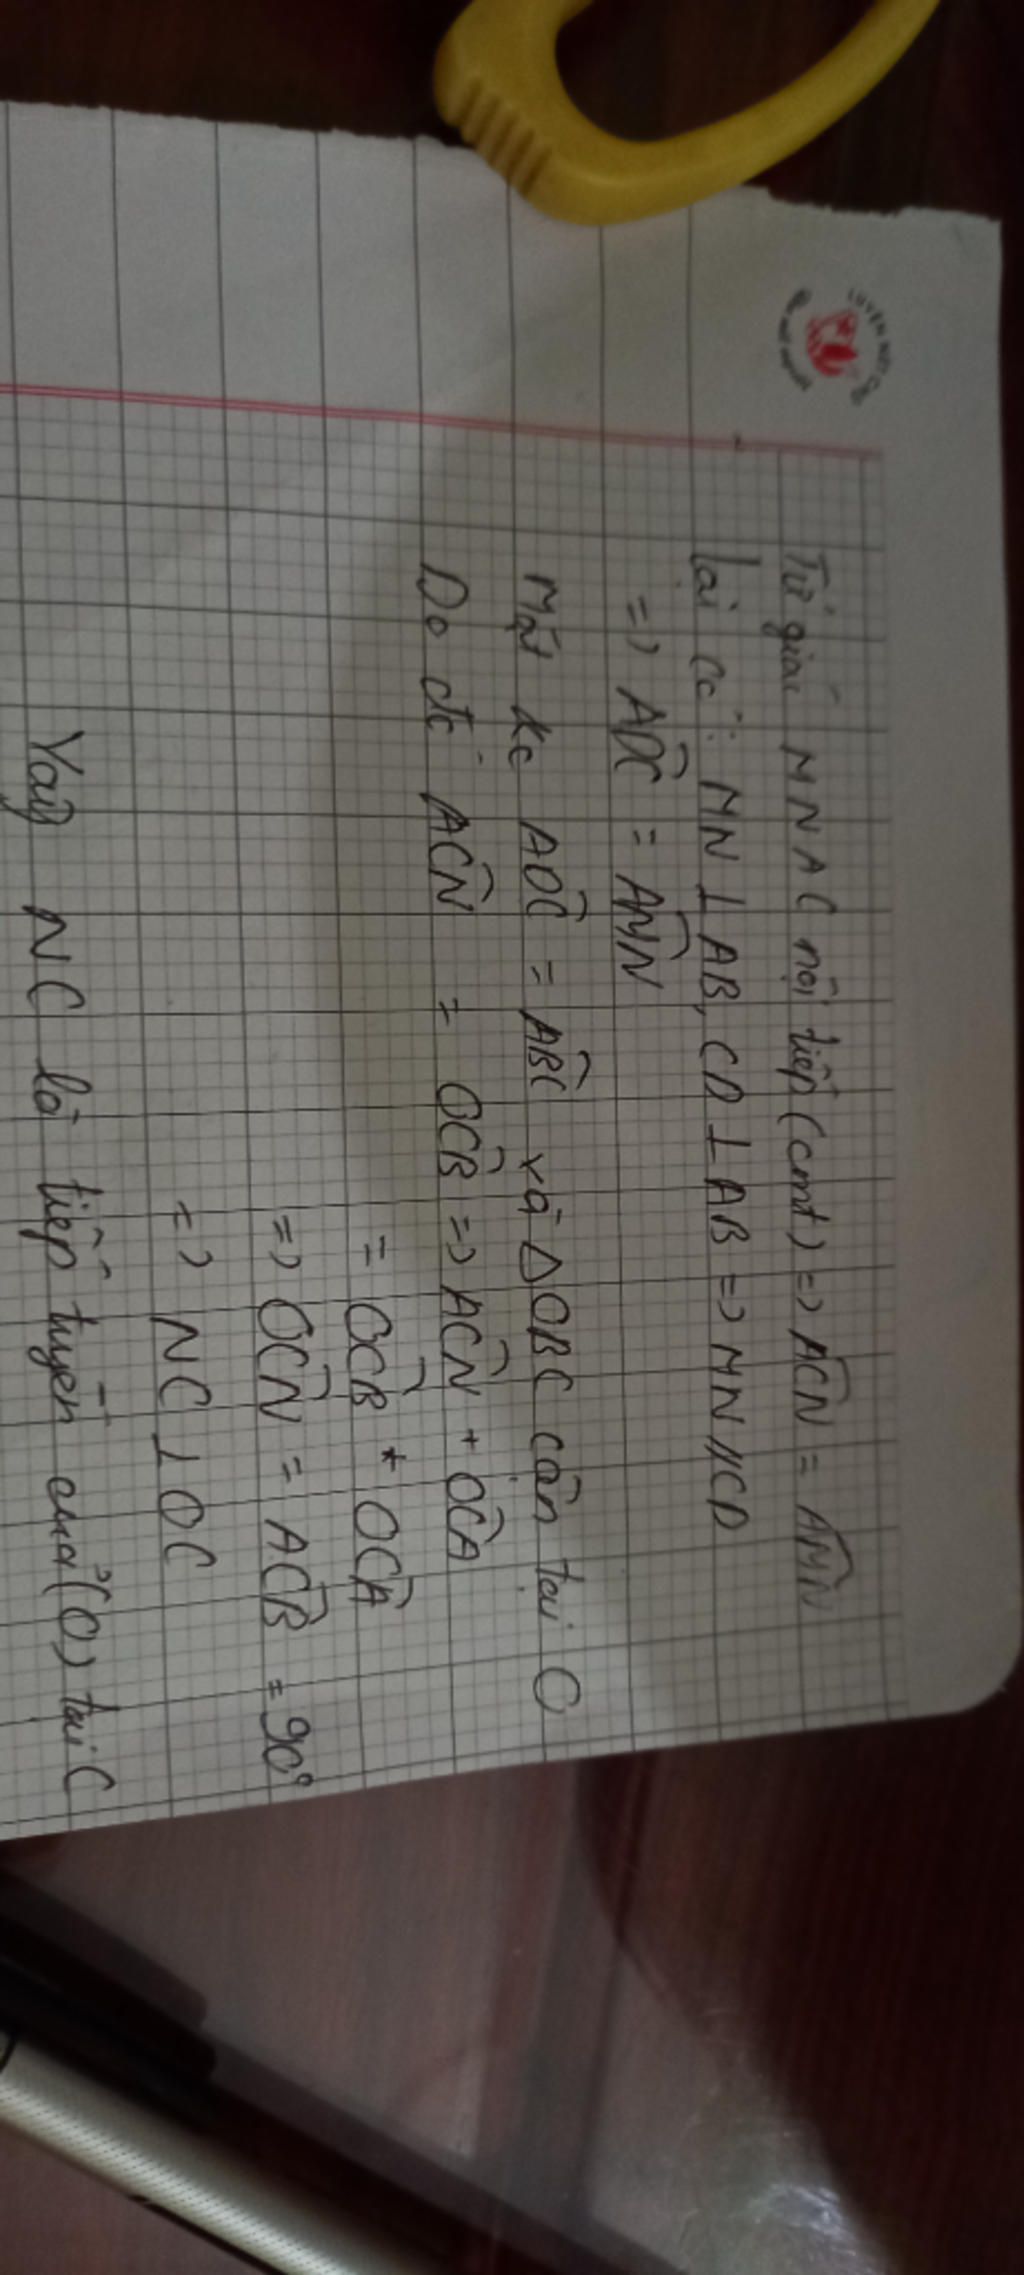 Tứ giác MNAC nội tiếp (cmt) => ACN = AMN
lại có: MN ⊥ AB, CD ⊥ AB => MN // CD
=> ADC = AMN
Mặt kc ADC = ABC và Δ OBC cân tại O
Do đó ACN = OCB => ACN + OCA
= OCB + OCA
=> OCN = ACB = 90°
=> NC ⊥ OC
Vậy NC là tiếp tuyến của (O) tại C